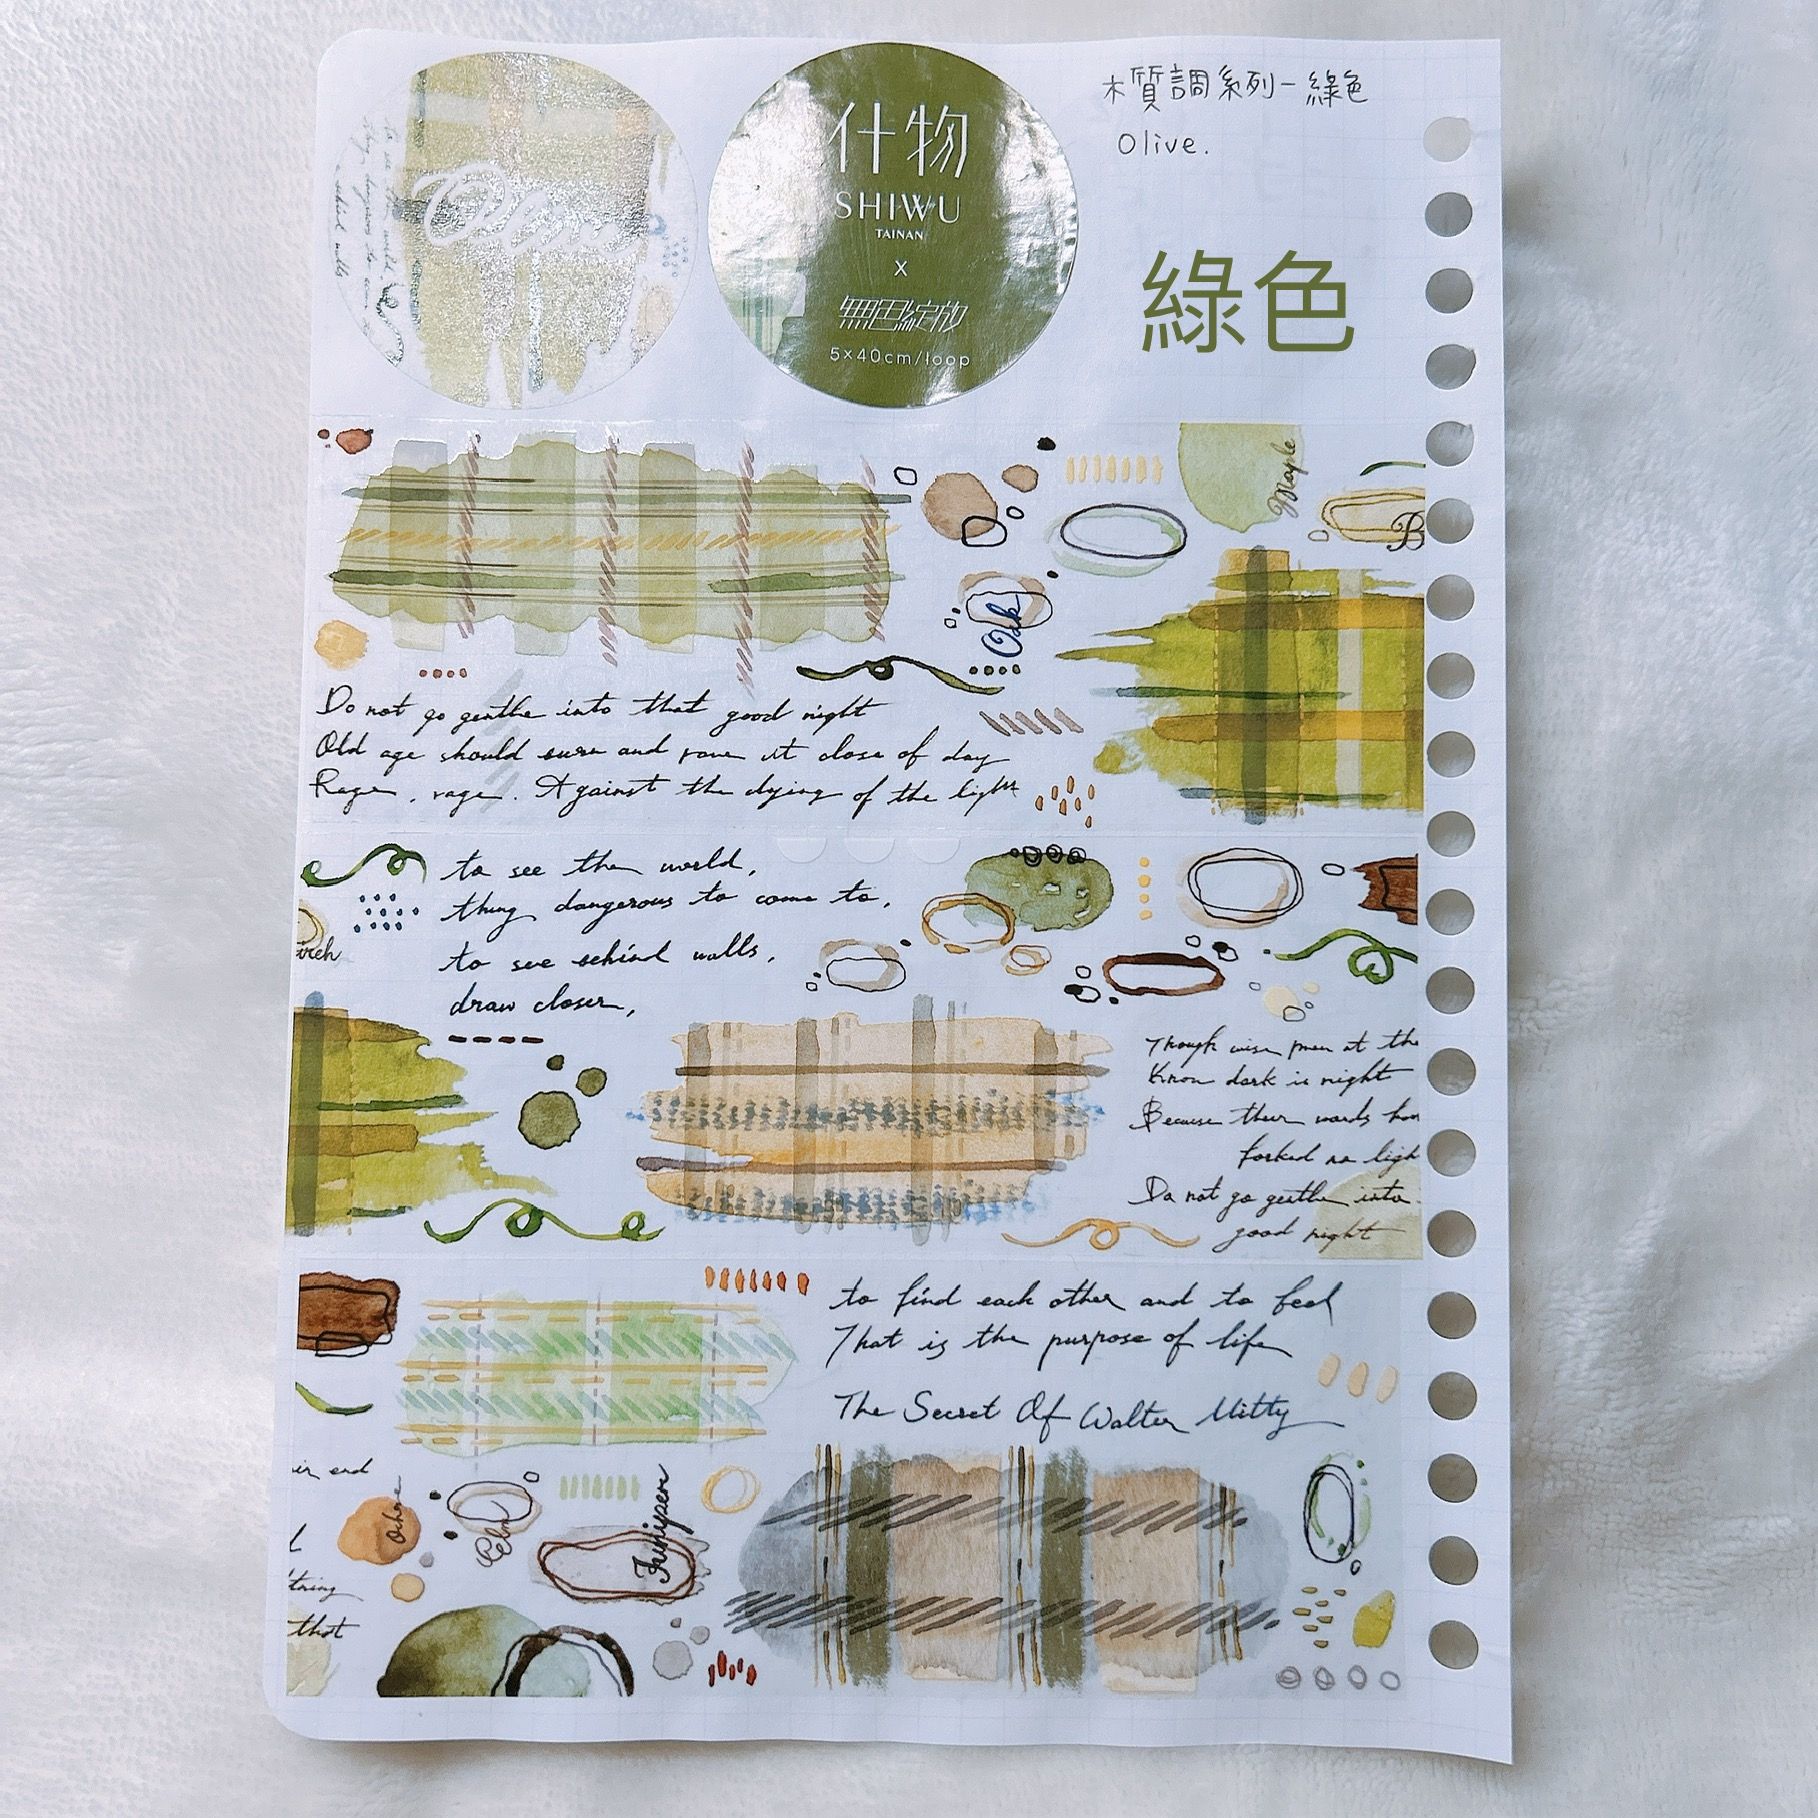 Olive
什物
SHIWU
TAINAN
X
無色綻放
5x40cm/loop
木質調系列-綠色
Olive.
綠色
Maple
B
Oak
Do not go gentle into that good night
Old age should and rave at close of day
Rage, rage. Against the dying of the light
to see the world,
thing dangerous to come to,
to see behind walls,
draw closer,
irch
Though wise men at the
Know dark is night
Because their words
forked no ligh
Do not go gentle into
good night
to find each other and to feel
That is the purpose of life
The Secret Of Walter Mitty
eir end
Ochre
Elm
Juniper
tning
that